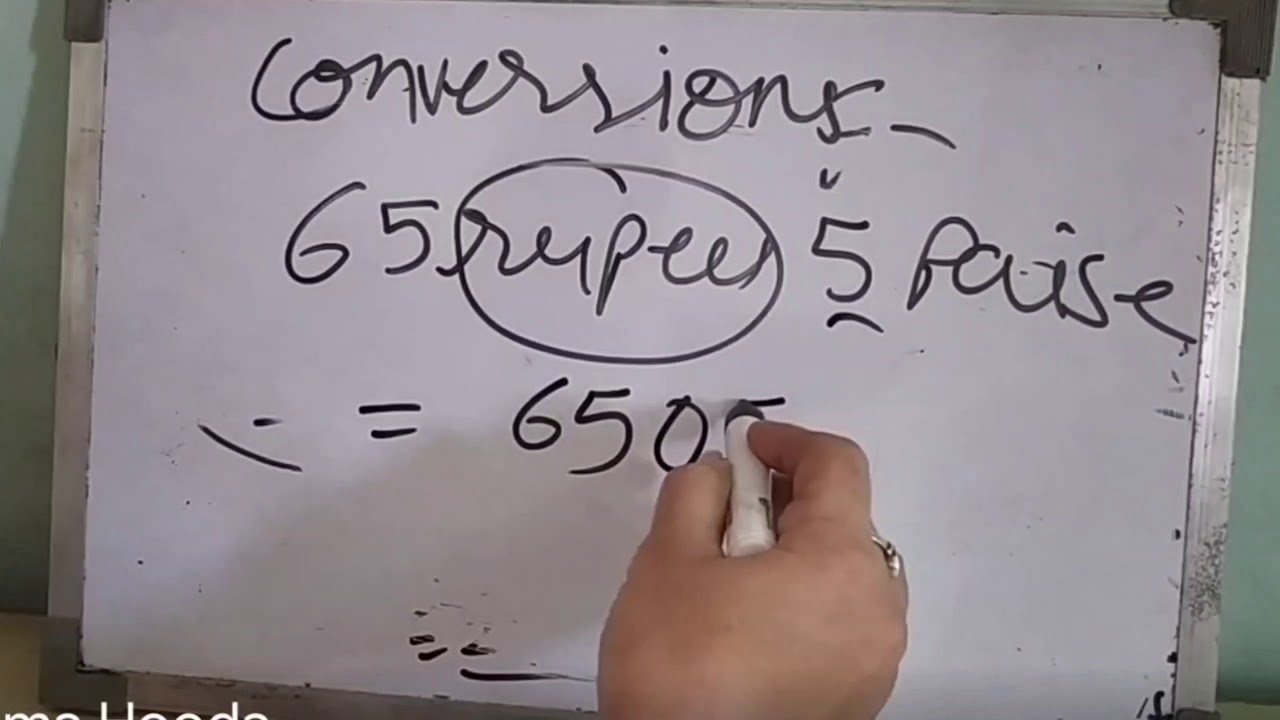 Conversions -
65 rupees 5 Paise
= 6505
Hooda